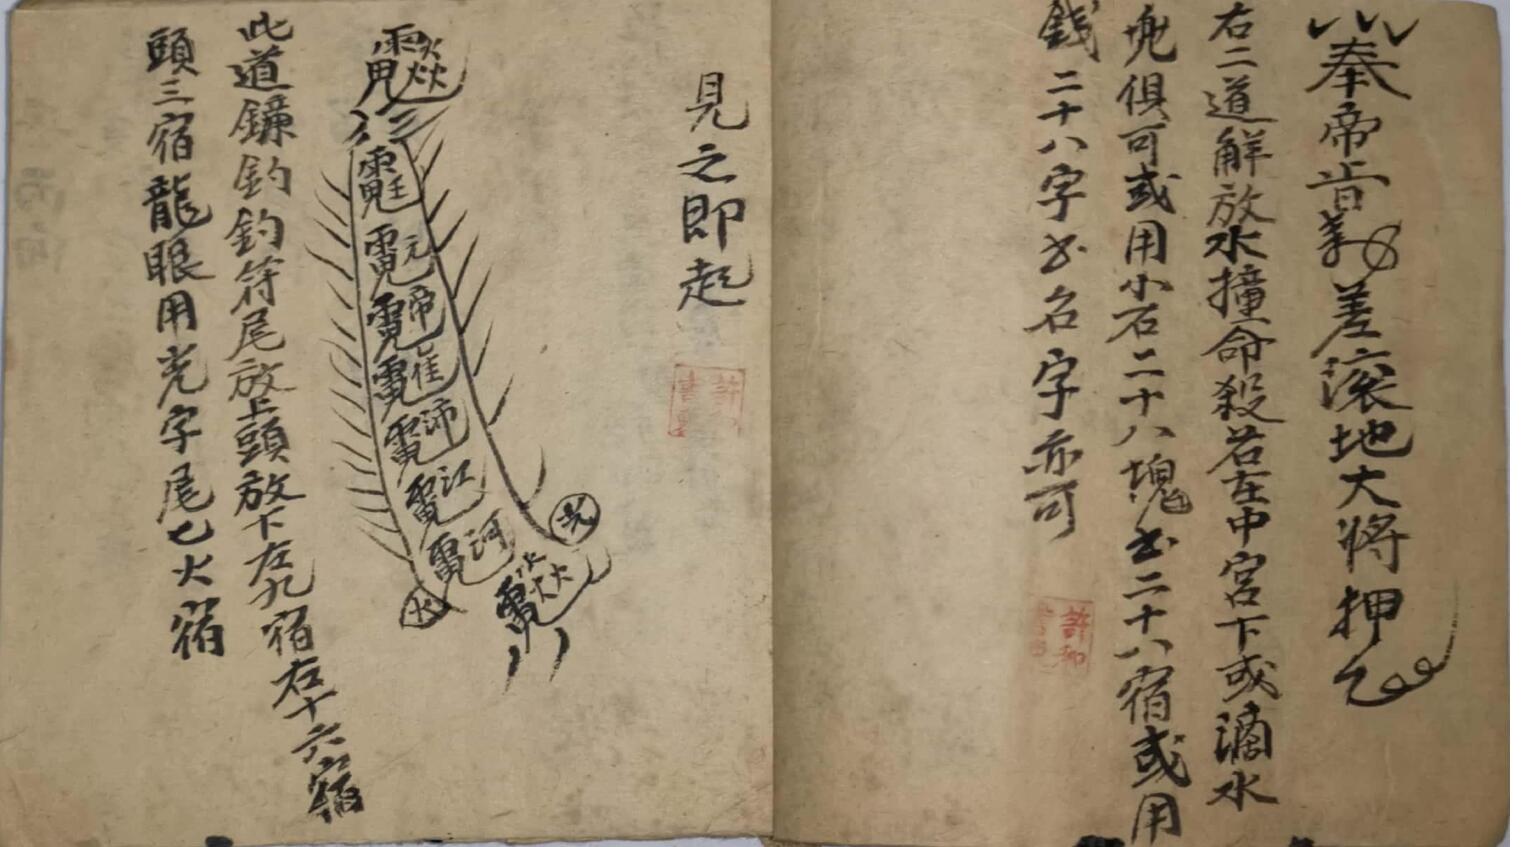 奉帝旨 差滚地大將押
右二道解放水撞命殺若在中宮下或滴水
塊俱可或用小石二十八塊书二十八宿或用
錢二十八字书名字亦可
見之即起
河
江
沛
帝
元
此道鐮鈎釣符尾放上頭放下左九宿右十六宿
頭三宿龍眼用光字尾七火宿